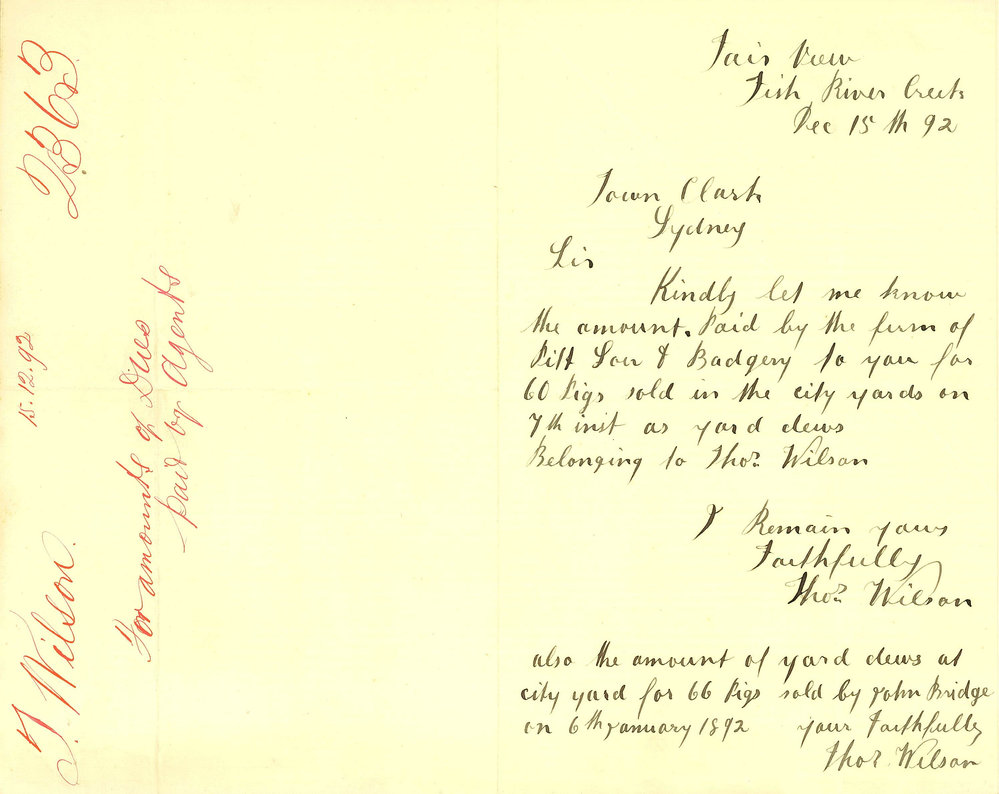 Fair View
Fish River Creek
Dec 15th 92
Town Clark
Sydney
Sir
Kindly let me know
the amount. Paid by the firm of
Pitt Son & Badgery to you for
60 Pigs sold in the city yards on
7th inst as yard dews
Belonging to Thos. Wilson
I Remain yours
Faithfully
Thos. Wilson
also the amount of yard dews at
city yard for 66 Pigs sold by John Bridge
on 6th January 1892 your Faithfully
Thos. Wilson
T. Wilson.
15.12.92
2363
For amounts of Dues
paid by Agents